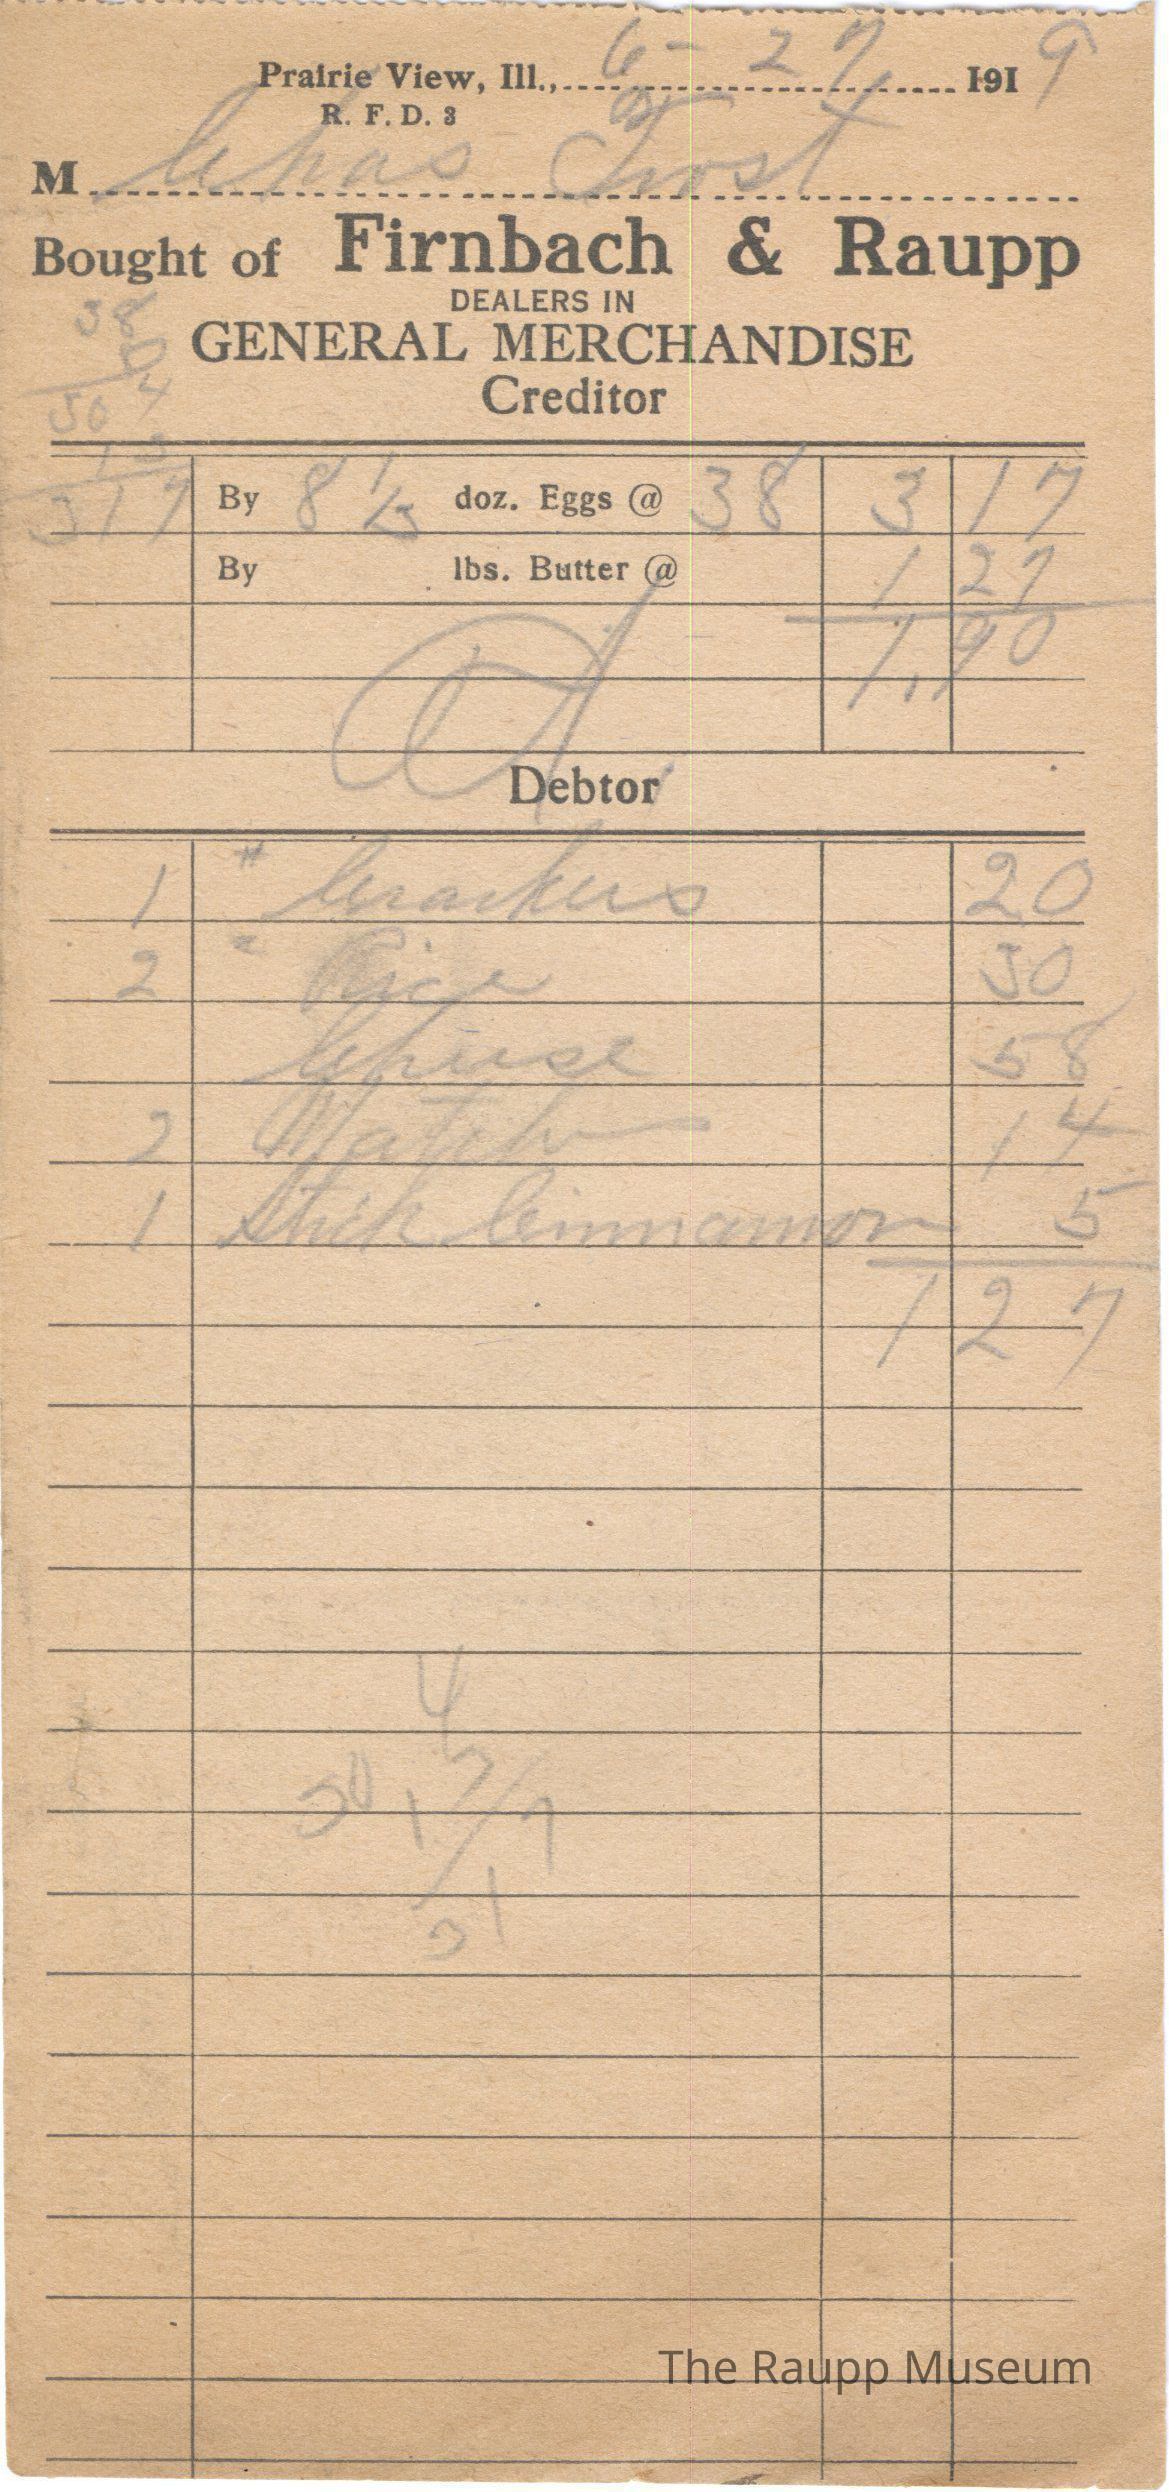 Prairie View, Ill., 6-27 1919
R. F. D. 3
M Chas Frost
Bought of Firnbach & Raupp
DEALERS IN
GENERAL MERCHANDISE
Creditor
38
8
304
13
317
By 8 1/3 doz. Eggs @ 38 3 17
By lbs. Butter @ 1 27
1.90
Debtor
1 # Crackers 20
2 " Rice 30
Cheese 58
2 Match 14
1 Stick Cinnamon 5
1 27
The Raupp Museum